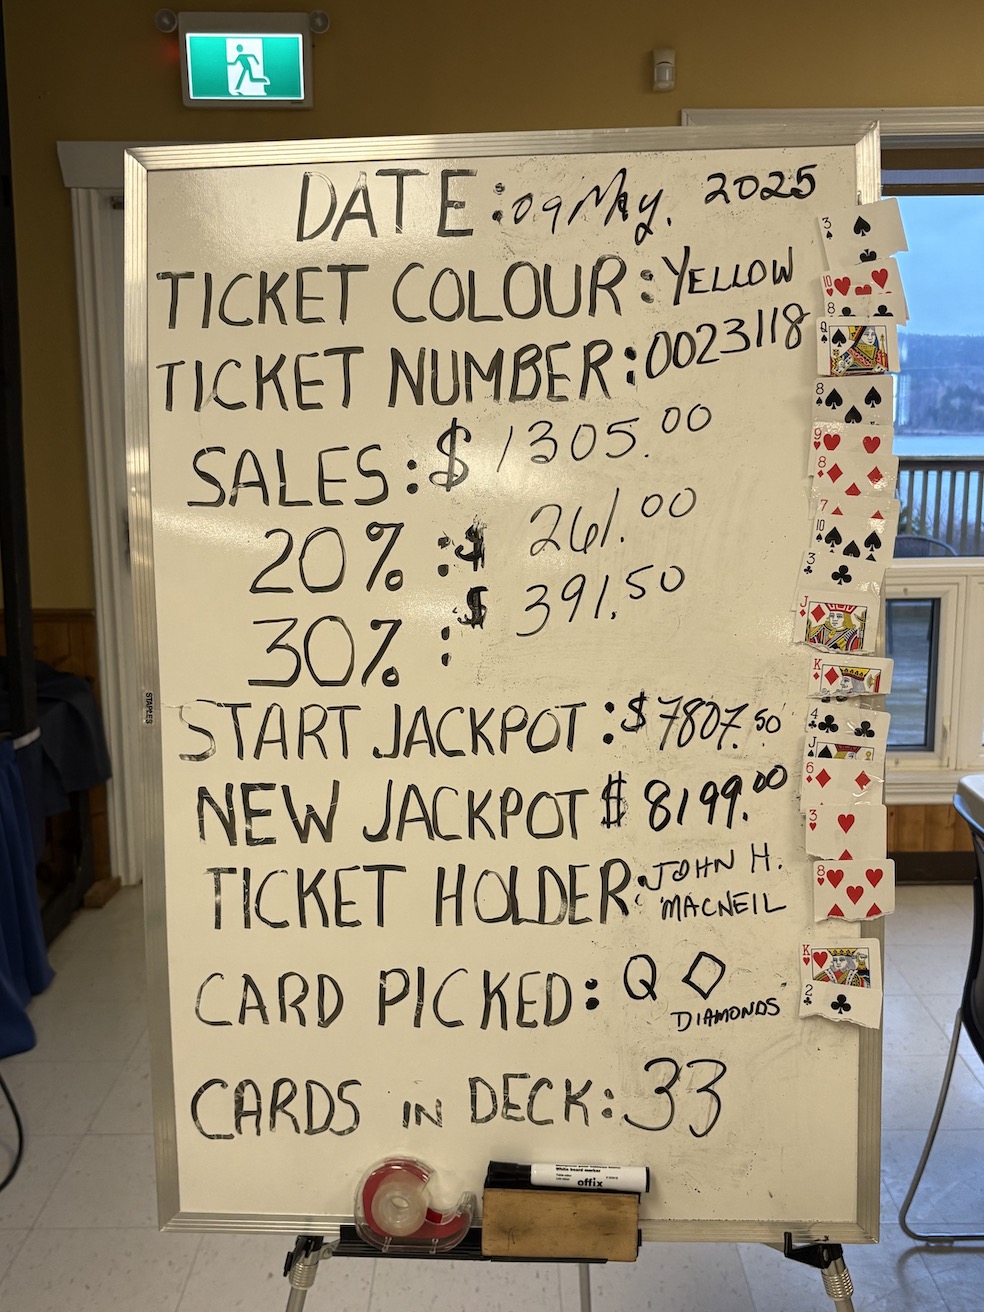 DATE: 09 May. 2025
TICKET COLOUR: YELLOW
TICKET NUMBER: 0023118
SALES: $ 1305.00
20% :$ 261.00
30% :$ 391.50
START JACKPOT: $7807.50
NEW JACKPOT $ 8199.00
TICKET HOLDER: JOHN H.
MACNEIL
CARD PICKED: Q ◇
DIAMONDS
CARDS IN DECK: 33
STAPLES
3
10
8
Q
8
9
8
7
10
3
J
K
4
J
6
3
8
K
2
White board marker
offix